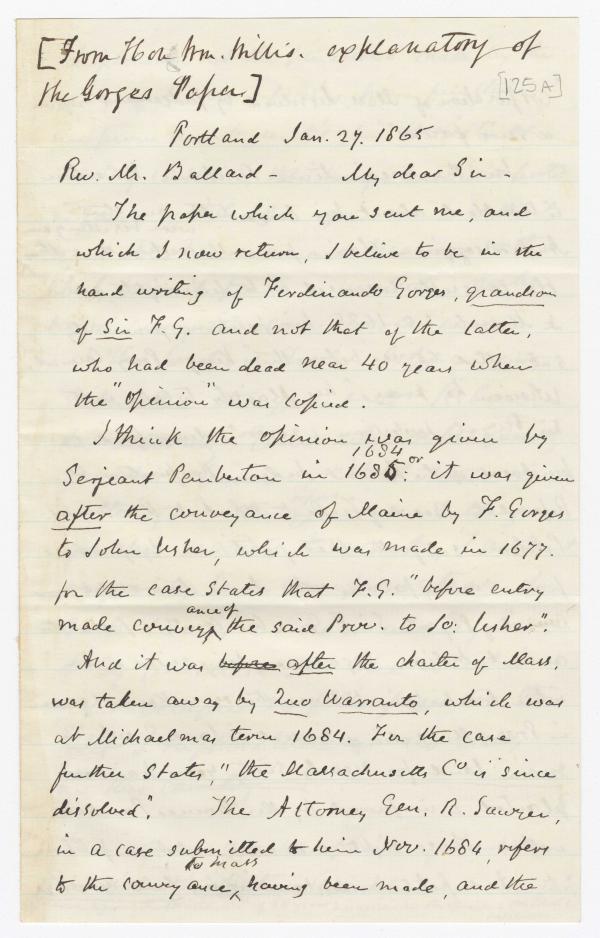 [From Hon Wm. Willis. explanatory of
the Gorges Papers]
[125A]
Portland Jan. 27. 1865
Rev. Mr. Ballard - My dear Sir -
The paper which you sent me, and
which I now return, I believe to be in the
hand writing of Ferdinando Gorges, grandson
of Sir F. G. and not that of the latter,
who had been dead near 40 years when
the "opinion" was copied.
I think the opinion was given by
1684 or
Serjeant Pemberton in 1685: it was given
after the conveyance of Maine by F. Gorges
to John Usher, which was made in 1677.
for the case states that F. G. "before entry
ance of
made convey^ the said Prov. to Jo: Usher".
And it was before after the charter of Mass.
was taken away by Quo Warranto, which was
at Michaelmas term 1684. For the case
further states, "the Massachusetts Co is since
dissolved". The Attorney Gen. R. Sawyer,
in a case submitted to him Nov. 1684, refers
to Mass
to the conveyance^ having been made, and the